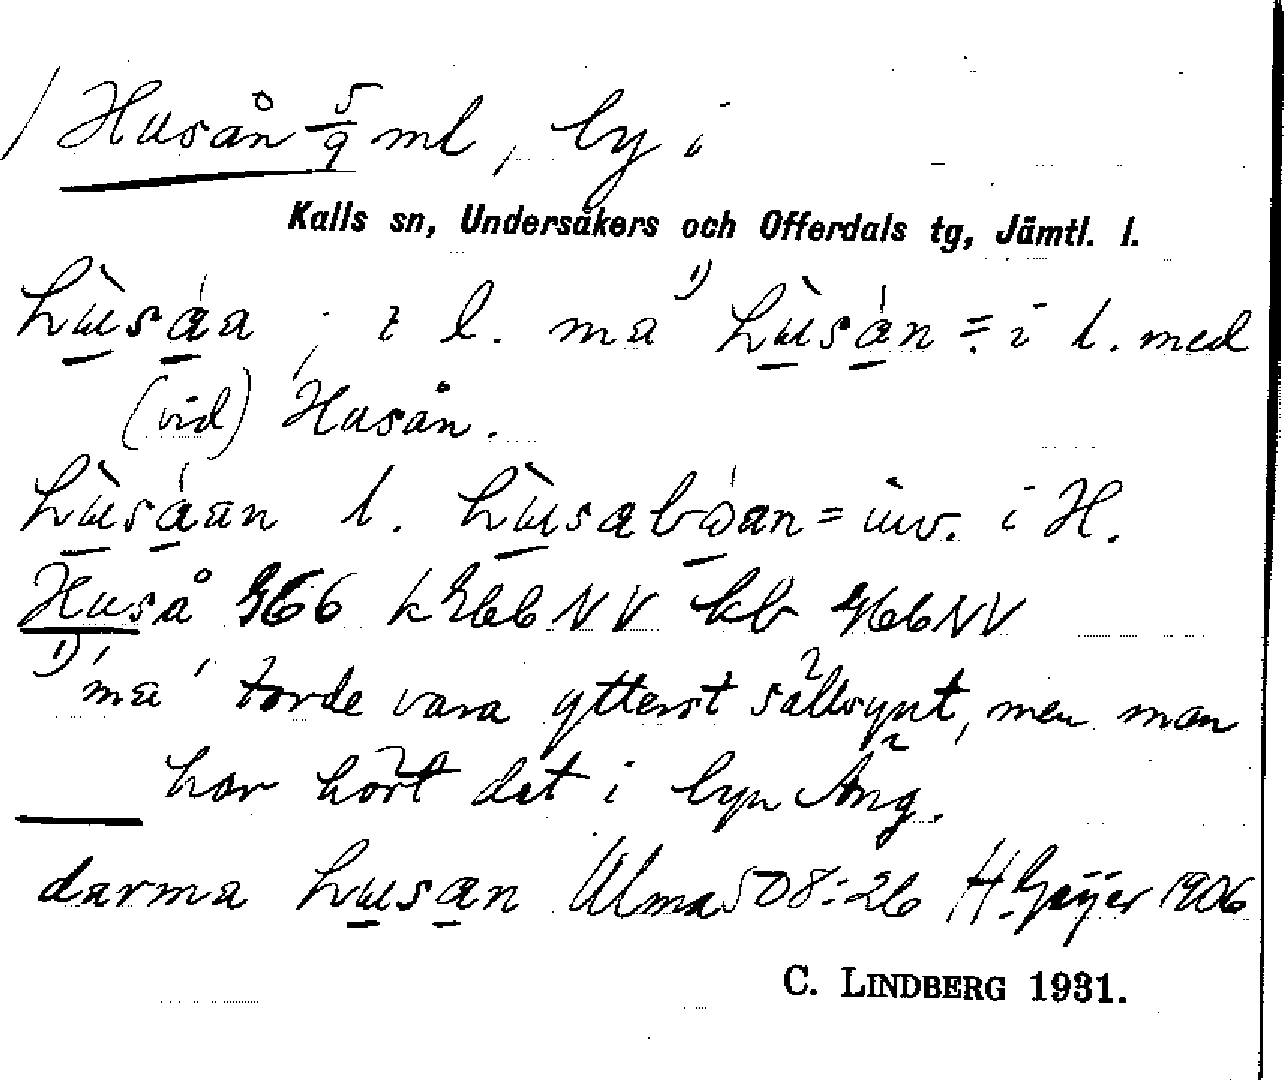 / Husån 5/9 ml, by i
Kalls sn, Undersåkers och Offerdals tg, Jämtl. l.
husåa, i l. ma 1) husån = i l. med
(vid) Husån.
husåan l. husaboan = inv. i H.
Huså 966 k 966 NV kb 966 NV
1) ma torde vara ytterst sällsynt, men man
har hört det i byn Äng.
darma husan Ulma 508:26 H. Geijer 1906
C. LINDBERG 1931.